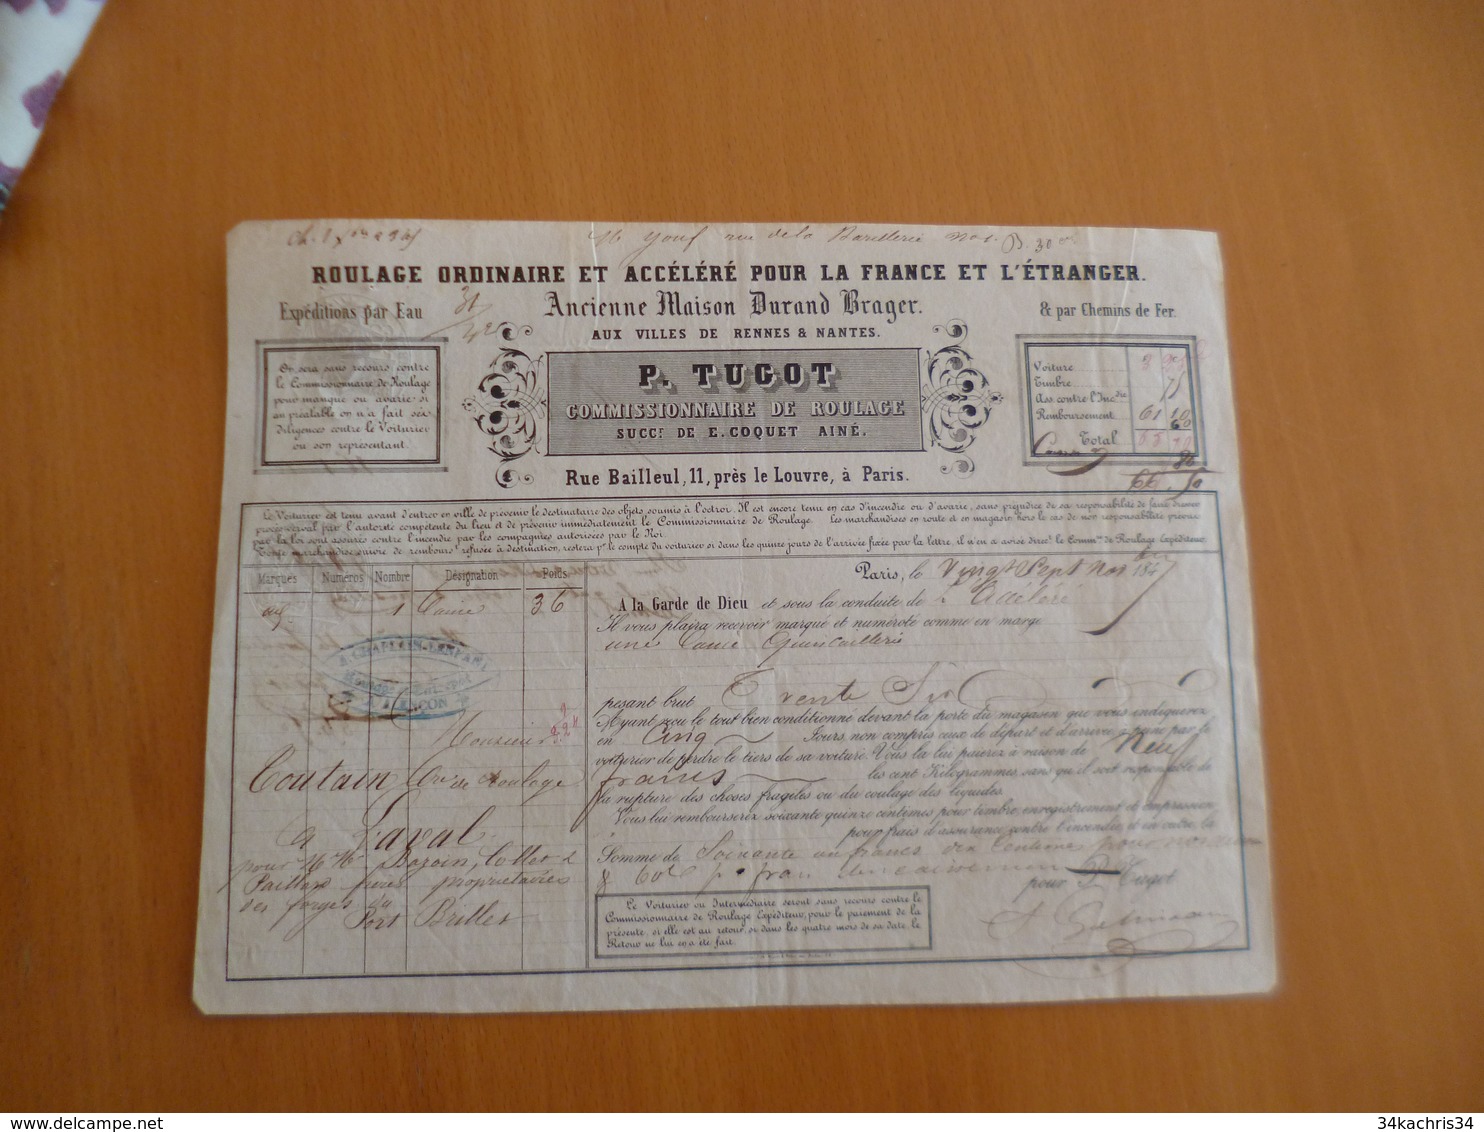 rue de la Barillerie
ROULAGE ORDINAIRE ET ACCÉLÉRÉ POUR LA FRANCE ET L'ÉTRANGER.
Expéditions par Eau
Ancienne Maison Durand Brager.
& par Chemins de Fer.
AUX VILLES DE RENNES & NANTES.
P. TUGOT
COMMISSIONNAIRE DE ROULAGE
SUCCr DE E. COQUET AINÉ.
Rue Bailleul, 11, près le Louvre, à Paris.
On sera sans recours contre
le Commissionnaire de Roulage
pour manque ou avarie si
au préalable on n'a fait ses
diligences contre le Voiturier
ou son représentant.
Voiture
Timbre
Ass. contre l'Incdie
Remboursement 61 10
Total
66
Le Voiturier est tenu avant d'entrer en ville de prévenir le destinataire des objets soumis à l'octroi. Il est encore tenu en cas d'incendie ou d'avarie, sans préjudice de sa responsabilité de faire dresser
procès verbal par l'autorité compétente du lieu et de prévenir immédiatement le Commissionnaire de Roulage. Les marchandises en route et en magasin hors le cas de non responsabilité prévue
par la loi sont assurées contre l'incendie par les compagnies autorisées par le Roi.
Toute marchandise suivie de rembours! refusée à destination, restera pr le compte du voiturier si dans les quinze jours de l'arrivée fixée par la lettre, il n'en a avisé direct. le Commre de Roulage Expéditeur.
Marques Numéros Nombre Désignation Poids.
1 Caisse 36
Paris, le Vingt Sept Nov 184
A la Garde de Dieu et sous la conduite de l'Accéléré
Il vous plaira recevoir marqué et numéroté comme en marge
une Caisse Quincaillerie
pesant brut Trente Six
Ayant reçu le tout bien conditionné devant la porte du magasin que vous indiquerez
en Cinq Jours, non compris ceux de départ et d'arrivée, à peine par le
voiturier de perdre le tiers de sa voiture. Vous la lui paierez à raison de Neuf
francs les cent Kilogrammes, sans qu'il soit responsable de
la rupture des choses fragiles ou du coulage des liquides.
Vous lui rembourserez soixante quinze centimes pour timbre, enregistrement et impression
pour frais d'assurance contre l'incendie, et en outre, la
Somme de Soixante un francs dix Centimes pour
60c
pour P. Tugot
ALENÇON
Monsieur
Coutain Cre de Roulage
à Laval
pour
Paillard frères propriétaires
des forges du
Port Brillet
Le Voiturier ou Intermédiaire seront sans recours contre le
Commissionnaire de Roulage Expéditeur, pour le paiement de la
présente, si elle est au retour, si dans les quatre mois de sa date, le
Retour ne lui en a été fait.
34kachris34 34kachris34